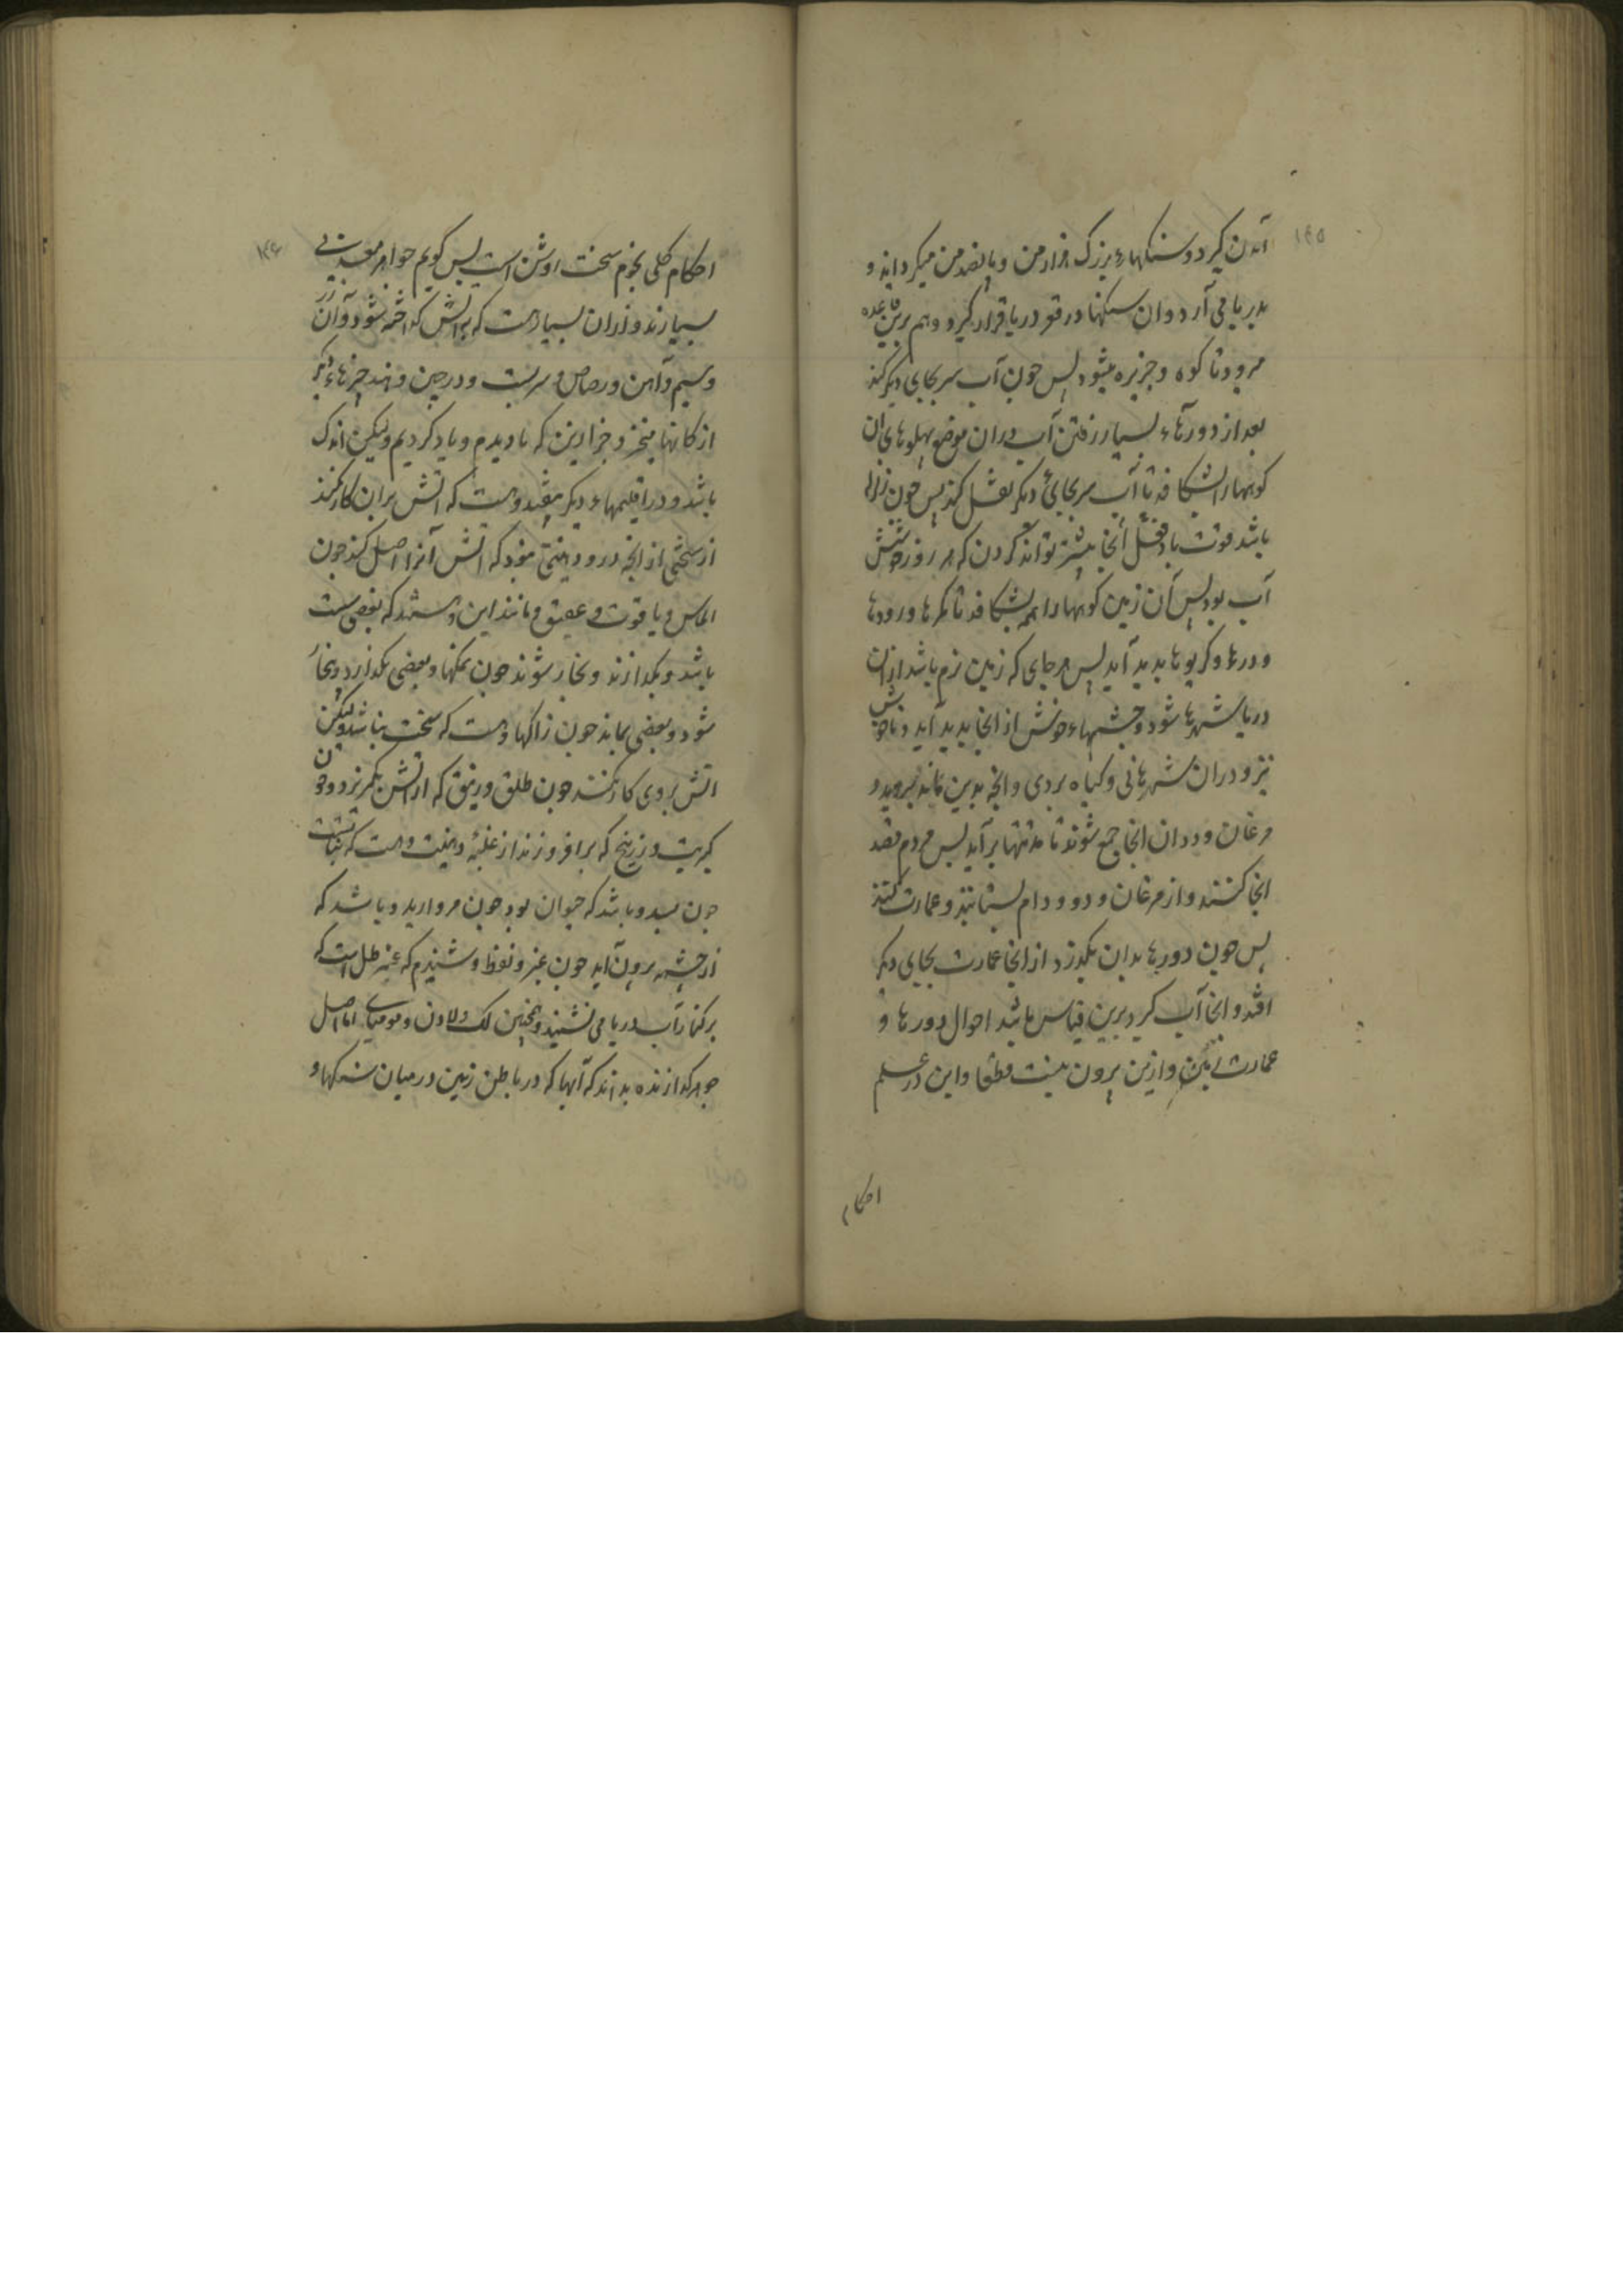 ۱۴۵
آمدن گیرد و سنکهاء بزرک هزار من و پانصد من میکرداند و
بدریا می آرد و ان سنکها در قعر دریا قرار کیرد و هم برین قاعده
میرود تا کوه و جزیره میشود پس جون آب سر بجای دیکر کند
بعد از دورهاء بسیار رفتن آب دران موضع پهلوهای ان
کوهها را بشکافد تا آب سر بجائی دیکر نقل کند پس جون زلزله
باشد قوت باد فعل آنجا بیشتر تواند کردن که هر روز
آب بود پس آن زمین کوهها را هم بشکافد تا کمرها و رودها
و درها و کریوها پدید آید پس هر جای که زمین نرم باشد ازان
دریا شهرها شود و جشمهاء خوش از انجا پدید آید و ناخوش
نیز و دران شهرها نی و کیاه بردی و انچه بدین ماند بروید و
مرغان و ددان انجا جمع شوند تا مدتها بر آید پس مردم قصد
انجا کنند و از مرغان و دد و دام بستانند و عمارت کنند
پس جون دورها بدان بکذرد از انجا عمارت بجایی دیکر
افتد و انجا آب کیرد برین قیاس باشد احوال دورها و
عمارت زمین و ازین بیرون نیست قطعا و این در علم
احکام
۱۴۶
احکام کلی نجوم سخت روشن است پس کویم جواهر معدنی
بسیارند و ازان بسیار هست که بر اتش کداخته شود و آن زر
و سیم و آهن و رصاص و سربست و در جین و هند چیزهاء دیکر
از کانها خیزد جز این که ما دیدم و یاد کردیم ولیکن اندک
باشد و در اقلیمهاء دیکر نیفتد و هست که اتش بران کار نکند
از سختی از انچه درو دهنیتی نبود که اتش آنرا اصل کند جون
الماس و یاقوت و عقیق و مانند این و هستند که بعضی سست
باشد و بکدازند و بخار شوند جون نمکها و بعضی بکدازد و بخار
شود و بعضی بماند جون زاکها و هست که سخت نباشد ولیکن
اتش بروی کار نکند جون طلق و زیبق که از اتش بکریزد و جون
کبریت و زرنیخ که برافروزند از غلبهٔ دهنیت و هست که نباتست
جون بسد و باشد که حیوان بود جون مروارید و باشد که
از جشمه برون آید جون عنبر و نفط و شنیدم که عنبر طل است که
بر کنار آب دریا می نشیند و همچنین لک و لادن و مومیای اما اصل
جوهر کدازنده بدانند که آبها که در باطن زمین در میان سنکها و